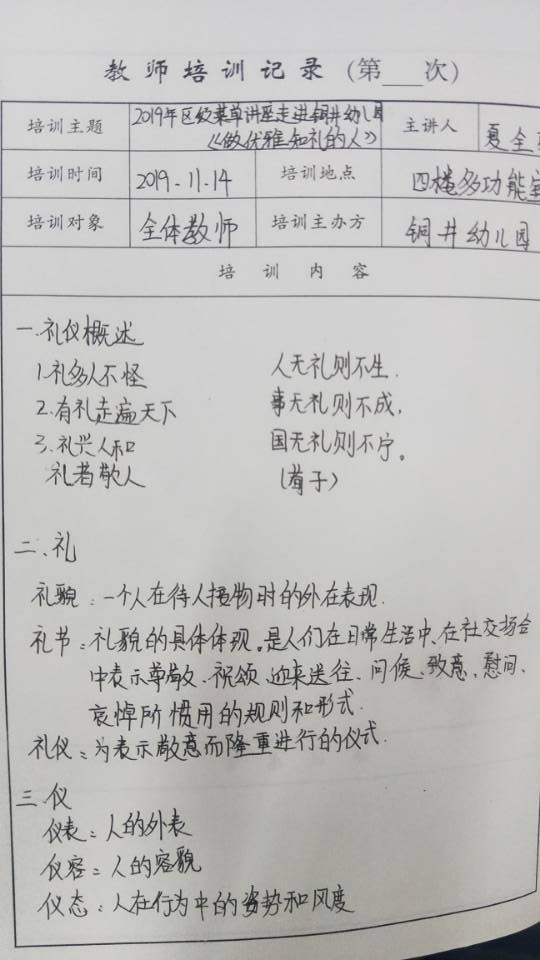 教师培训记录（第___次）
培训主题 2019年区级菜单讲座走进铜井幼儿园《做优雅知礼的人》 主讲人 夏全
培训时间 2019.11.14 培训地点 四楼多功能室
培训对象 全体教师 培训主办方 铜井幼儿园
培训内容
一.礼仪概述
1.礼多人不怪 人无礼则不生.
2.有礼走遍天下 事无礼则不成,
3.礼兴人和 国无礼则不宁。
礼者敬人 （荀子）
二、礼
礼貌：一个人在待人接物时的外在表现.
礼节：礼貌的具体体现。是人们在日常生活中、在社交场合
中表示尊敬、祝颂、迎来送往、问候、致意、慰问、
哀悼所惯用的规则和形式.
礼仪：为表示敬意而隆重进行的仪式.
三.仪
仪表：人的外表
仪容：人的容貌
仪态：人在行为中的姿势和风度